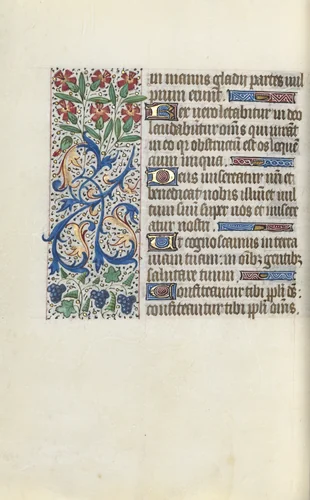 in manus gladii partes vul
pium erunt.
Rex vero letabitur in deo
laudabuntur om̄s qui iurāt
in eo q̄ obstructū est os loquen̄
cium iniqua.
Deus misereatur nr̄i et
benedicat nobis illumīet vul
tum suū super nos et misere
atur nostri.
Ut cognoscamus in terra
uiam tuam: in oīb; gentib;
salutare tuum.
Confiteantur tibi ppl̄i ds̄:
confiteantur tibi ppl̄i om̄s.